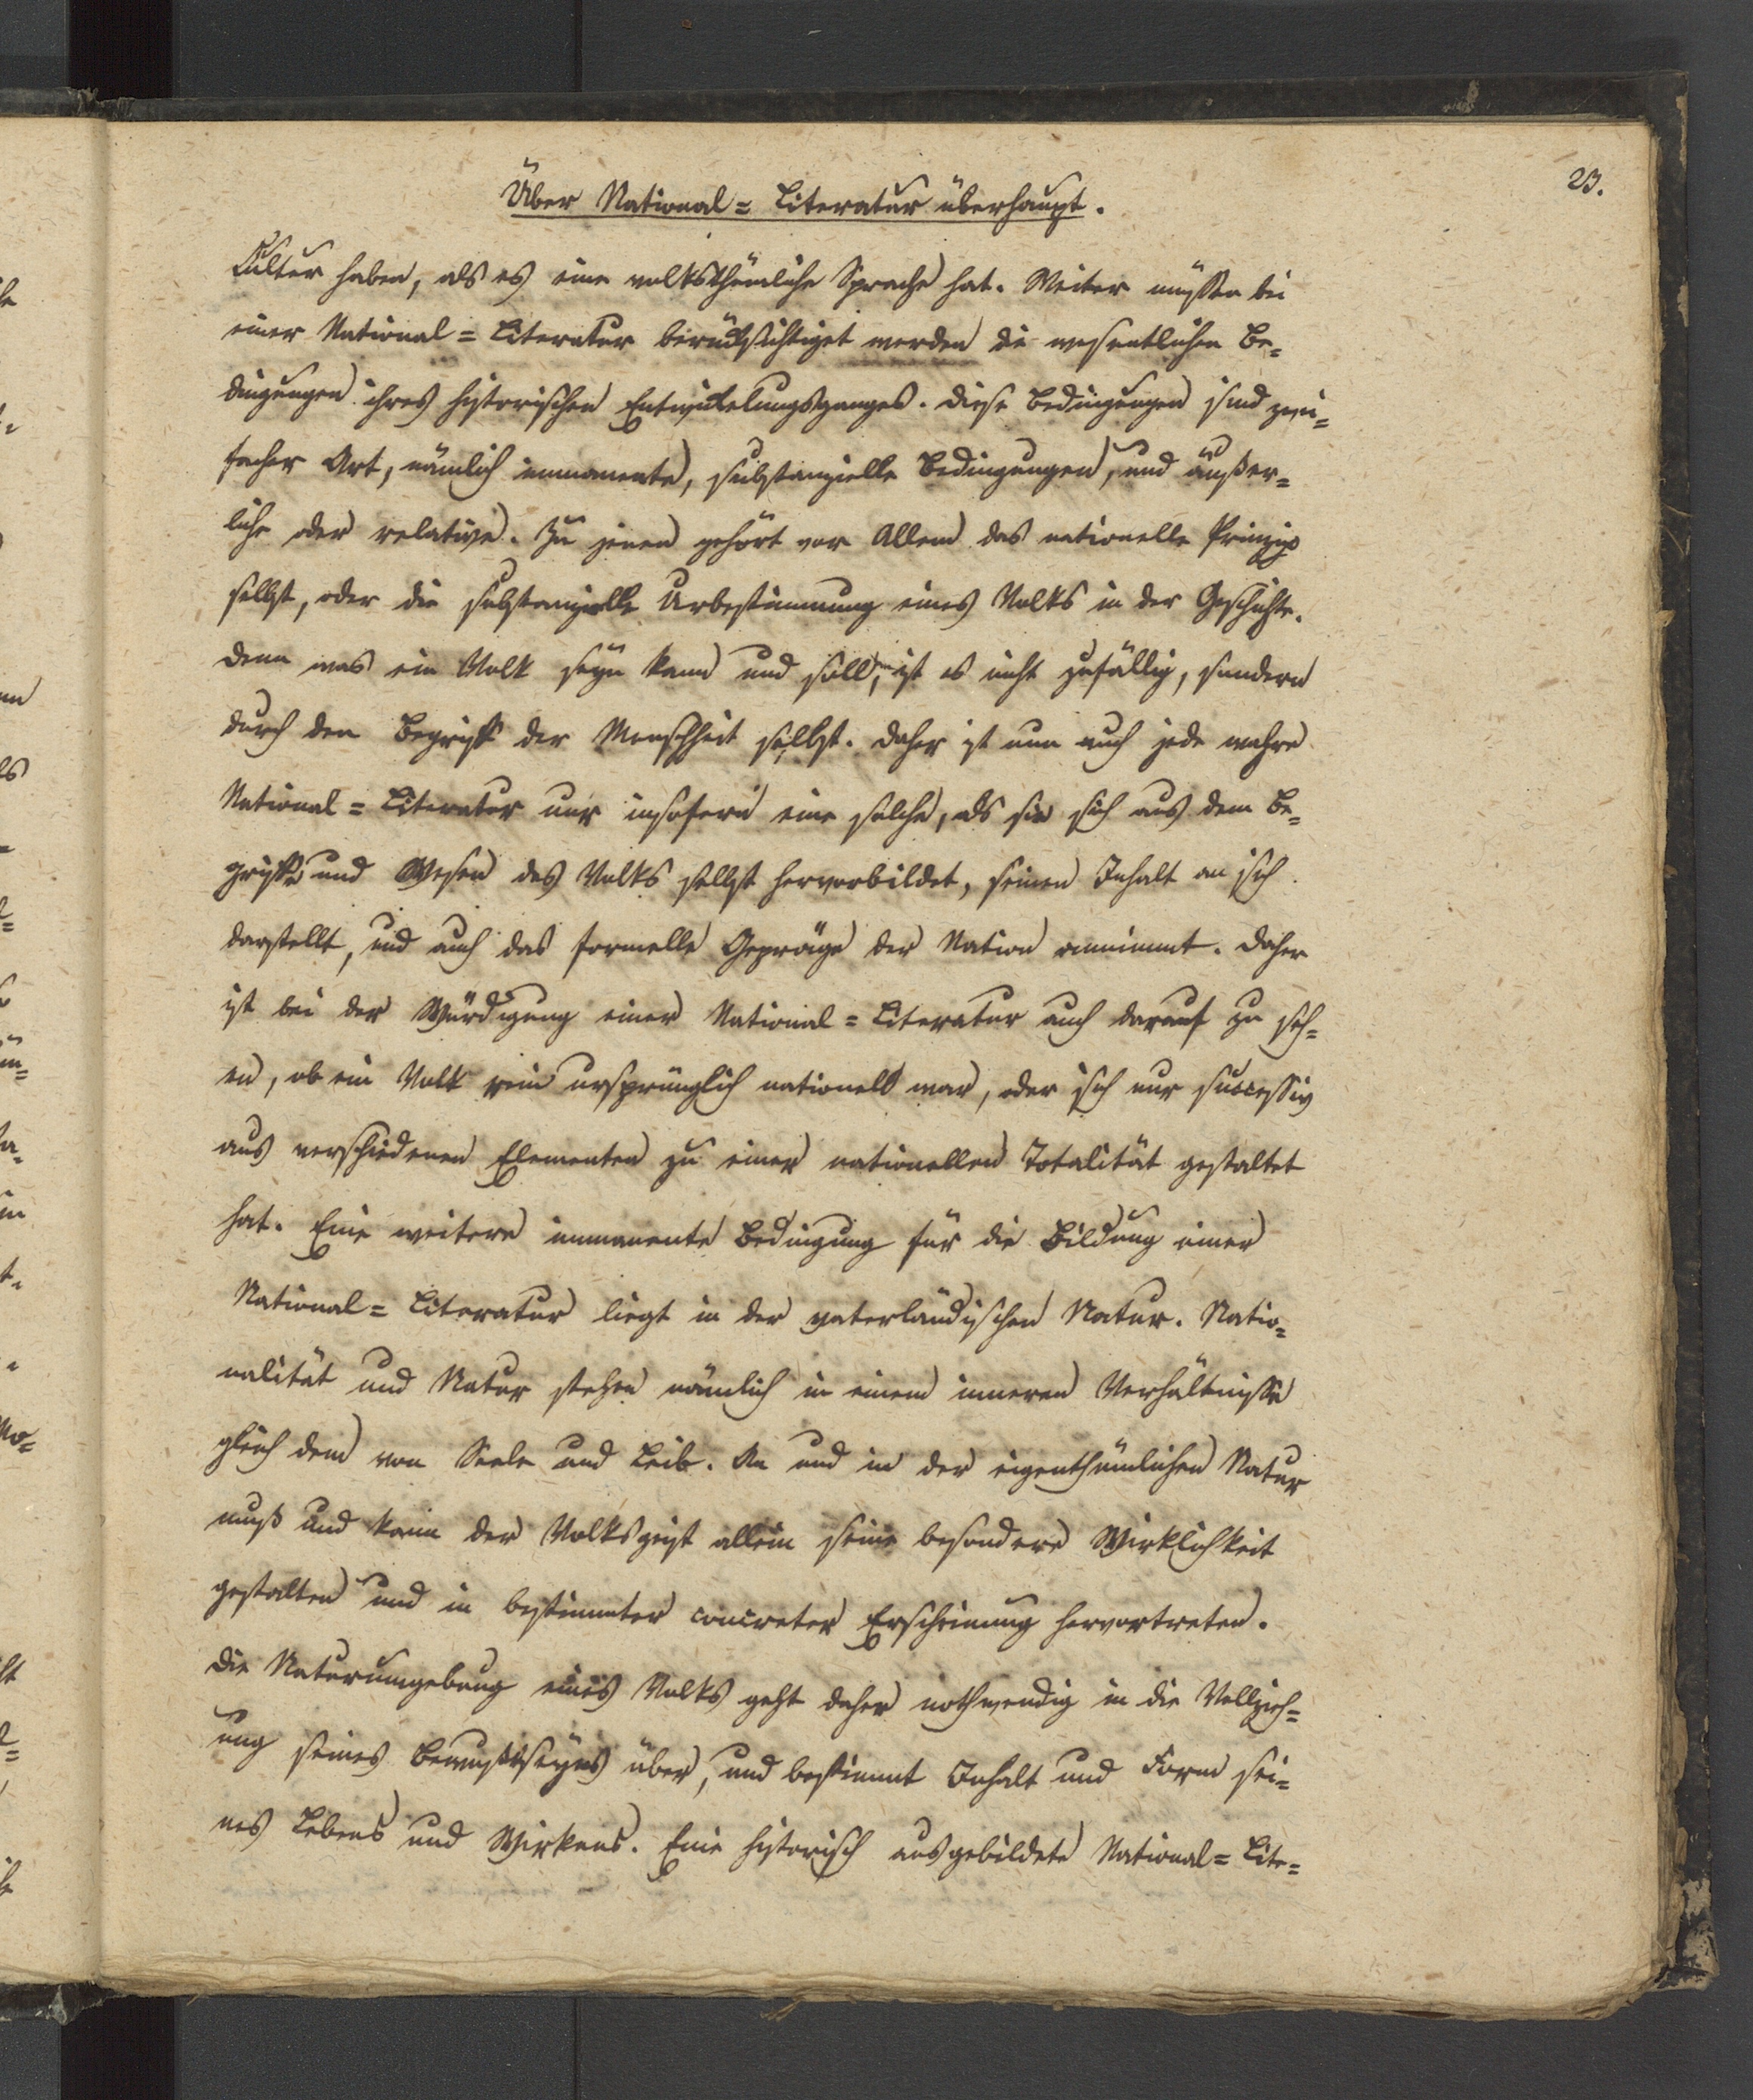 23.
Über National= Literatur überhaupt.
Cultur haben, als es eine volksthümliche Sprache hat. Weiter müssen bei
einer National= Literatur berücksichtiget werden die wesentlichen Be=
dingungen ihres historischen Entwickelungsganges. Diese Bedingungen sind zwei=
facher Art, nämlich immanente, substanzielle Bedingungen, und äußer=
liche oder relative. Zu jenen gehört vor Allem das nationelle Prinzip
selbst, oder die substanzielle Urbestimmung eines Volks in der Geschichte.
Denn was ein Volk seyn kann und soll, ist es nicht zufällig, sondern
durch den Begriff der Menschheit selbst. Daher ist nun auch jede wahre
National= Literatur nur insofern eine solche, als sie sich aus dem Be=
griffe und Wesen des Volks selbst hervorbildet, seinen Inhalt an sich
darstellt, und auch das formelle Gepräge der Nation annimmt. Daher
ist bei der Würdigung einer National= Literatur auch darauf zu seh=
en, ob ein Volk rein ursprünglich nationell war, oder sich nur successiv
aus verschiedenen Elementen zu einer nationellen Totalität gestaltet
hat. Eine weitere immanente Bedingung für die Bildung einer
National= Literatur liegt in der vaterländischen Natur. Natio=
nalität und Natur stehen nämlich in einem inneren Verhältnisse
gleich dem von Seele und Leib. An und in der eigenthümlichen Natur
muß und kann der Volksgeist allein seine besondere Wirklichkeit
gestalten und in bestimmter concreter Erscheinung hervortreten.
Die Naturumgebung eines Volks geht daher nothwendig in die Vollzieh=
ung seines Bewußtseyns über, und bestimmt Inhalt und Form sei=
nes Lebens und Wirkens. Eine historisch ausgebildete National= Lite=